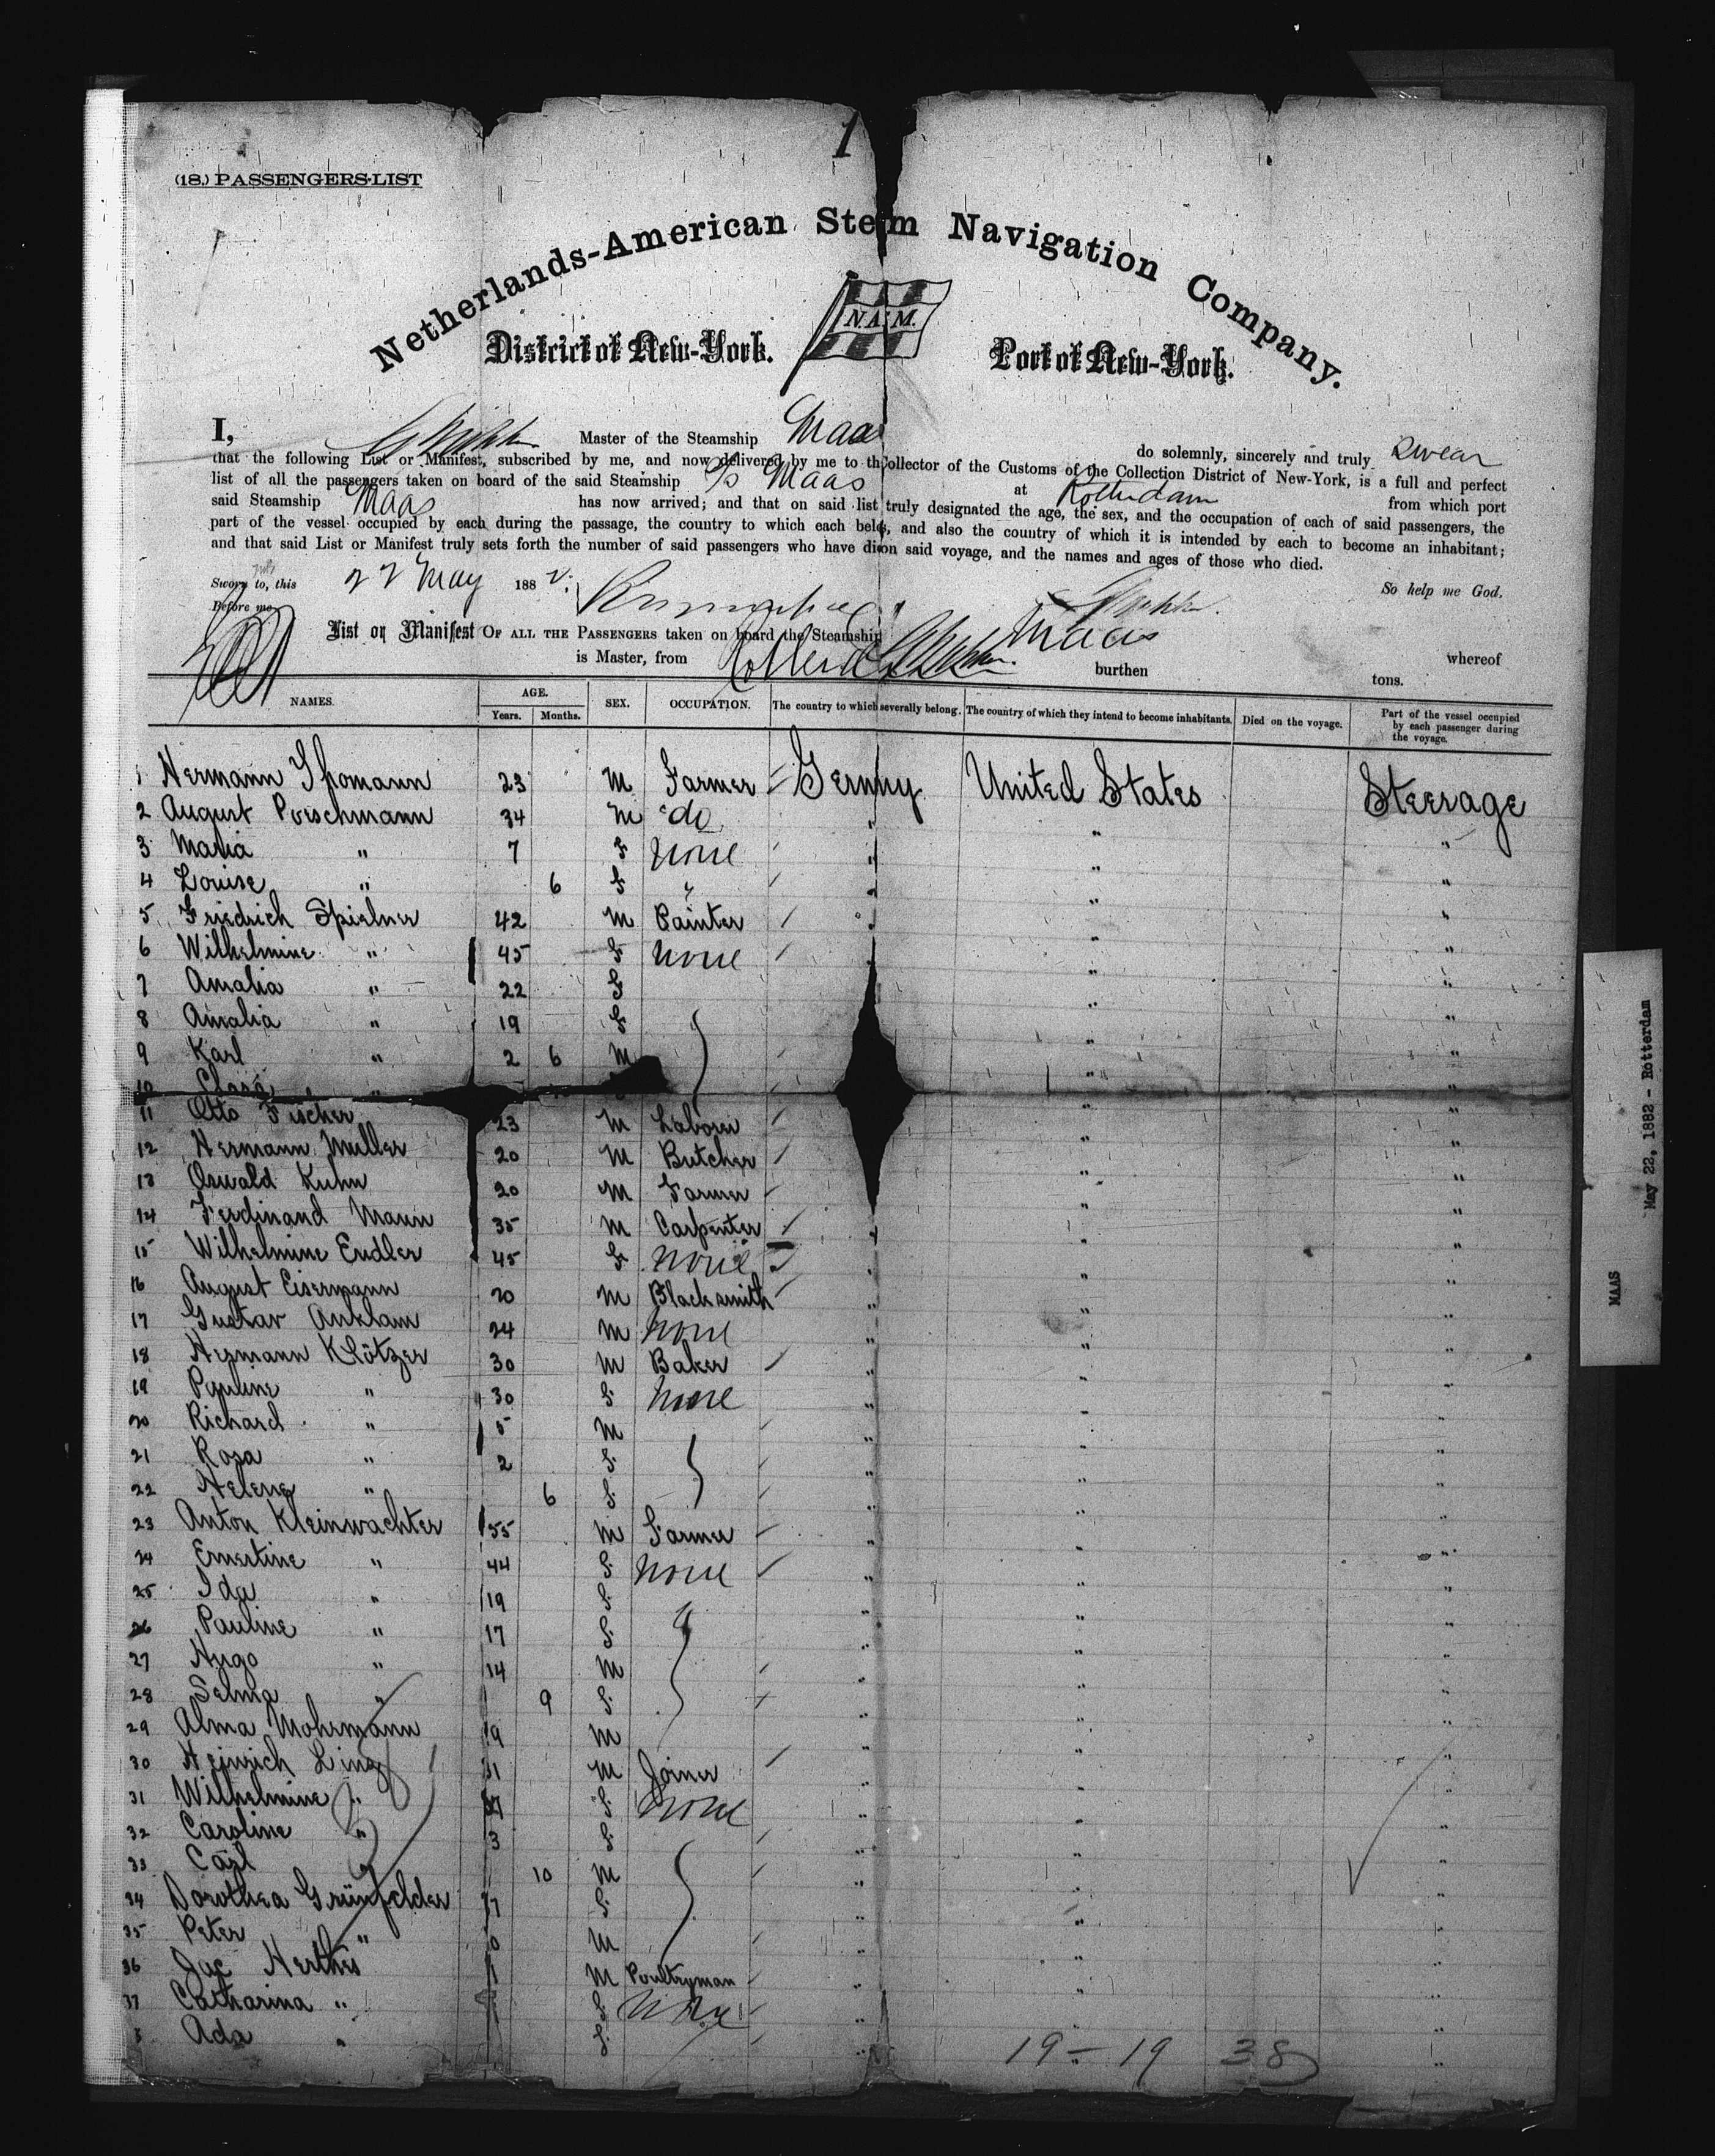 1
(18.) PASSENGERS-LIST
Netherlands-American Steam Navigation Company.
N.A.M.
District of New-York. Port of New-York.
I, Master of the Steamship Maas do solemnly, sincerely and truly swear
that the following List or Manifest, subscribed by me, and now delivered by me to the Collector of the Customs of the Collection District of New-York, is a full and perfect
list of all the passengers taken on board of the said Steamship Maas at Rotterdam from which port
said Steamship Maas has now arrived; and that on said list truly designated the age, the sex, and the occupation of each of said passengers, the
part of the vessel occupied by each during the passage, the country to which each belongs, and also the country of which it is intended by each to become an inhabitant;
and that said List or Manifest truly sets forth the number of said passengers who have died on said voyage, and the names and ages of those who died.
Sworn to, this 22 May 1882. So help me God.
Before me
List or Manifest OF ALL THE PASSENGERS taken on board the Steamship Maas whereof
is Master, from burthen tons.
NAMES. AGE. Years. Months. SEX. OCCUPATION. The country to which severally belong. The country of which they intend to become inhabitants. Died on the voyage. Part of the vessel occupied by each passenger during the voyage.
1 Hermann Thomann 23 M Farmer Germny United States Steerage
2 August Poeschmann 34 M do " " "
3 Maria " 7 F None " " "
4 Louise " 6 F " " " "
5 Friedrich Spielner 42 M Painter " " "
6 Wilhelmine " 45 F None " " "
7 Amalia " 22 F " "
8 Amalia " 19 F " "
9 Karl " 2 6 M " "
10 Clara " " "
11 Otto Fischer 23 M Laborer " "
12 Hermann Muller 20 M Butcher " "
13 Oswald Kuhn 20 M Farmer " "
14 Ferdinand Mann 35 M Carpenter " " "
15 Wilhelmine Endler 45 F None " " "
16 August Eisermann 20 M Blacksmith " " "
17 Gustav Anklam 24 M None " " "
18 Hermann Klötzer 30 M Baker " " "
19 Pauline " 30 F None " " "
20 Richard " 5 M " " "
21 Rosa " 2 F " " "
22 Helene " 6 F " " "
23 Anton Kleinwachter 55 M Farmer " " "
24 Ernestine " 44 F None " " "
25 Ida " 19 F " " "
26 Pauline " 17 F " " "
27 Hugo " 14 M " " "
28 Selma " 9 F " " "
29 Alma Mohrmann 19 M " " "
30 Heinrich Ling 31 M Joiner " " "
31 Wilhelmine " F None " " "
32 Caroline " 3 F " " "
33 Carl " 10 M " " "
34 Dorothea Grünfelder F " " "
35 Peter " M " " "
36 Jac Herthes M Poultryman " " "
37 Catharina " F None " " "
8 Ada " F " " "
19 - 19 38
MAAS May 22, 1882 - Rotterdam